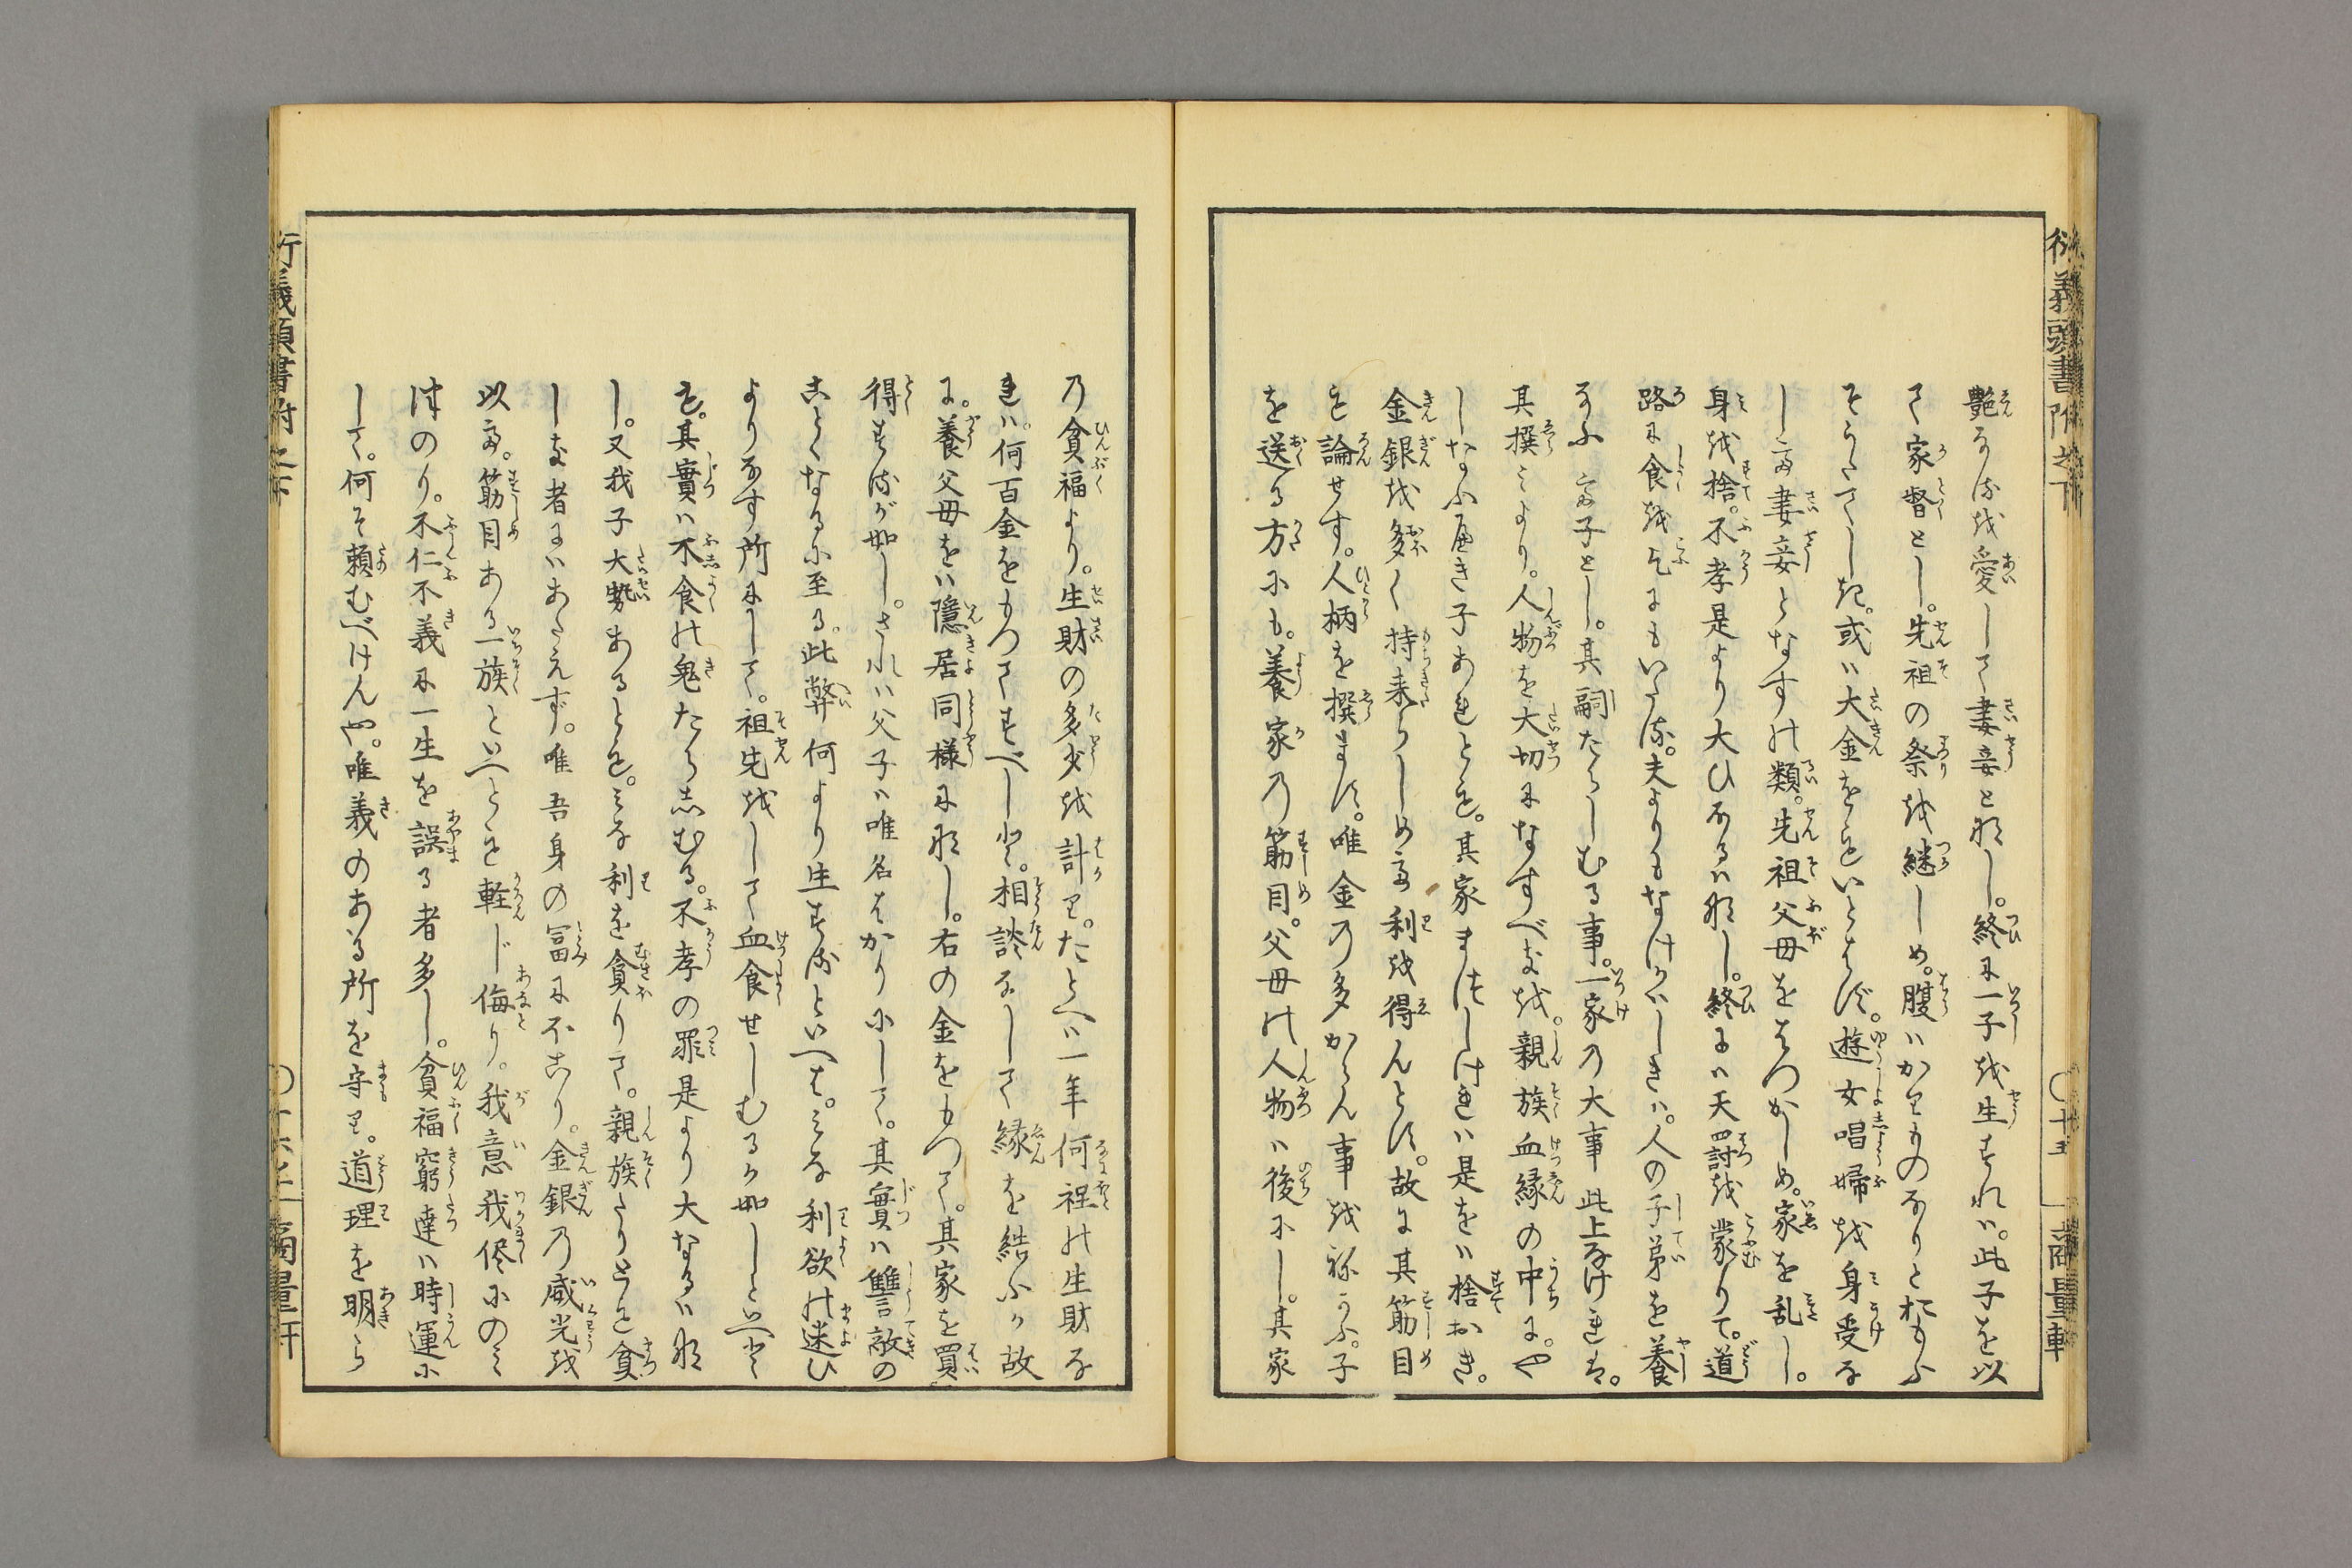 艶なるを愛して妻妾と為し。終に一子を生ずれハ。此子を以
て家督とし。先祖の祭を継しめ。腹ハかりものなりとおもふ
そうたてしき。或ハ大金をもいとはず。遊女唱婦を身受な
して妻妾となすの類。先祖父母をはづかしめ。家を乱し。
身を捨。不孝是より大ひなるハ為し。終にハ天罸を蒙りて。道
路に食を乞にもいたる。夫よりもなげかハしきハ。人の子弟を養
なふ て子とし。其嗣たらしむる事。一家の大事此上なければ。
其撰ミより。人物を大切になすべきを。親族血縁の中に。や
しなふ屁き子あれとも。其家まづしけれハ是をハ捨おき。
金銀を多く持来らしめて利を得んとす。故に其筋目
を論せす。人柄を撰まず。唯金の多からん事をねがふ。子
を送る方にも。養家の筋目。父母の人物ハ後にし。其家
の貧福より。生財の多少を計り。たとへハ一年何程の生財な
れハ。何百金をもつてすべしと。相談なして縁を結ふか故
に。養父母をハ隠居同様に為し。右の金をもつて。其家を買
得するが如し。されハ父子ハ唯名はかりにして。其實ハ讐敵の
ことくなるに至る。此弊何より生するといへは。ミな利欲の迷ひ
よりなす所にして。祖先をして血食せしむるか如しといへど
も。其實ハ不食の鬼たらしむる。不孝の罪是より大なるハ為
し。又我子大勢あるとも。ミな利を貪りて。親族たりとも貧
しき者にハあたえず。唯吾身の冨にほこり。金銀の威光を
以て。筋目ある一族といへとも軽んじ侮り。我意我侭にのミ
ほのり。不仁不義に一生を誤る者多し。貧福窮達ハ時運に
して。何そ頼むべけんや。唯義のある所を守り。道理を明ら